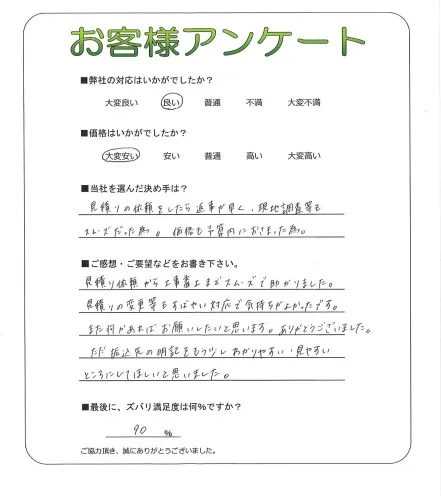 お客様アンケート
■弊社の対応はいかがでしたか？
大変良い 良い 普通 不満 大変不満
■価格はいかがでしたか？
大変安い 安い 普通 高い 大変高い
■当社を選んだ決め手は？
見積りの依頼をしたら返事が早く、現地調査等も
スムーズだった為。価格も予算内におさまった為。
■ご感想・ご要望などをお書き下さい。
見積り依頼から工事完了までスムーズで助かりました。
見積りの変更等もすばやい対応で気持ちがよかったです。
また何かあればお願いしたいと思います。ありがとうございました。
ただ振込先の明記をもう少しわかりやすい、見やすい
ところにしてほしいと思いました。
■最後に、ズバリ満足度は何％ですか？
90 ％
ご協力頂き、誠にありがとうございました。